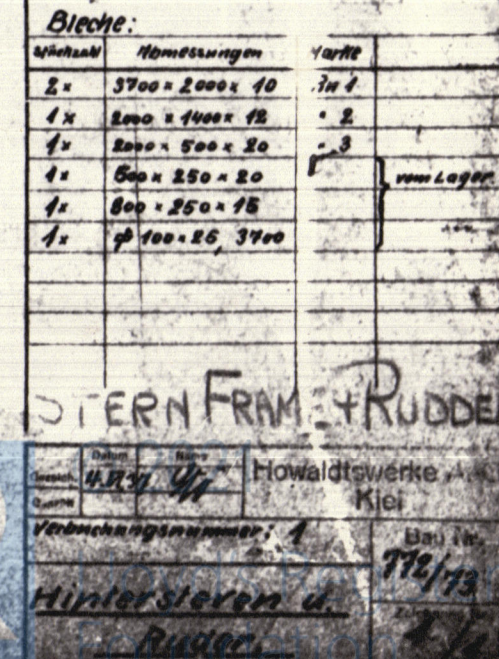 Bleche:
Stückzahl Abmessungen Marke
2x 3700 x 2000 x 10 1
1x 2000 x 1400 x 12 " 2
1x 2000 x 500 x 20 " 3
1x 500 x 250 x 20 vom Lager
1x 800 x 250 x 15
1x φ 100 x 25, 3700
STERN FRAME + RUDDE
Datum Name
Gezeich.
Howaldtswerke A.G.
Kiel
Verbuchungsnummer: 1
Bau Nr.
772/73
Hintersteven u.
Ruder.
Lloyd's Register
Foundation